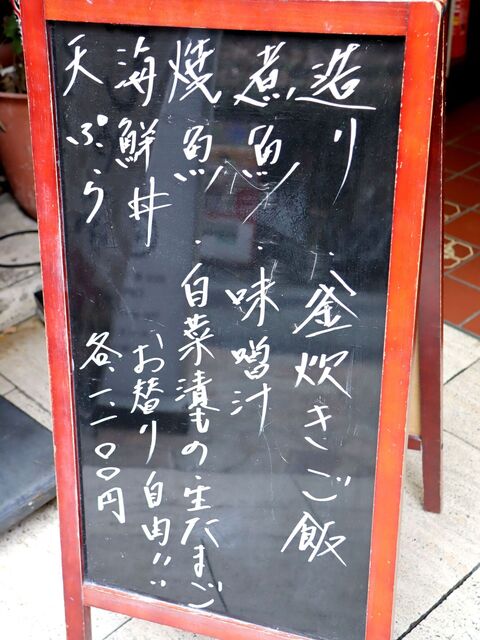 造り
煮魚
焼魚
海鮮丼
天ぷら
・釜炊きご飯
・味噌汁
・白菜漬もの・生たまご
お替り自由!!
各一、一〇〇円